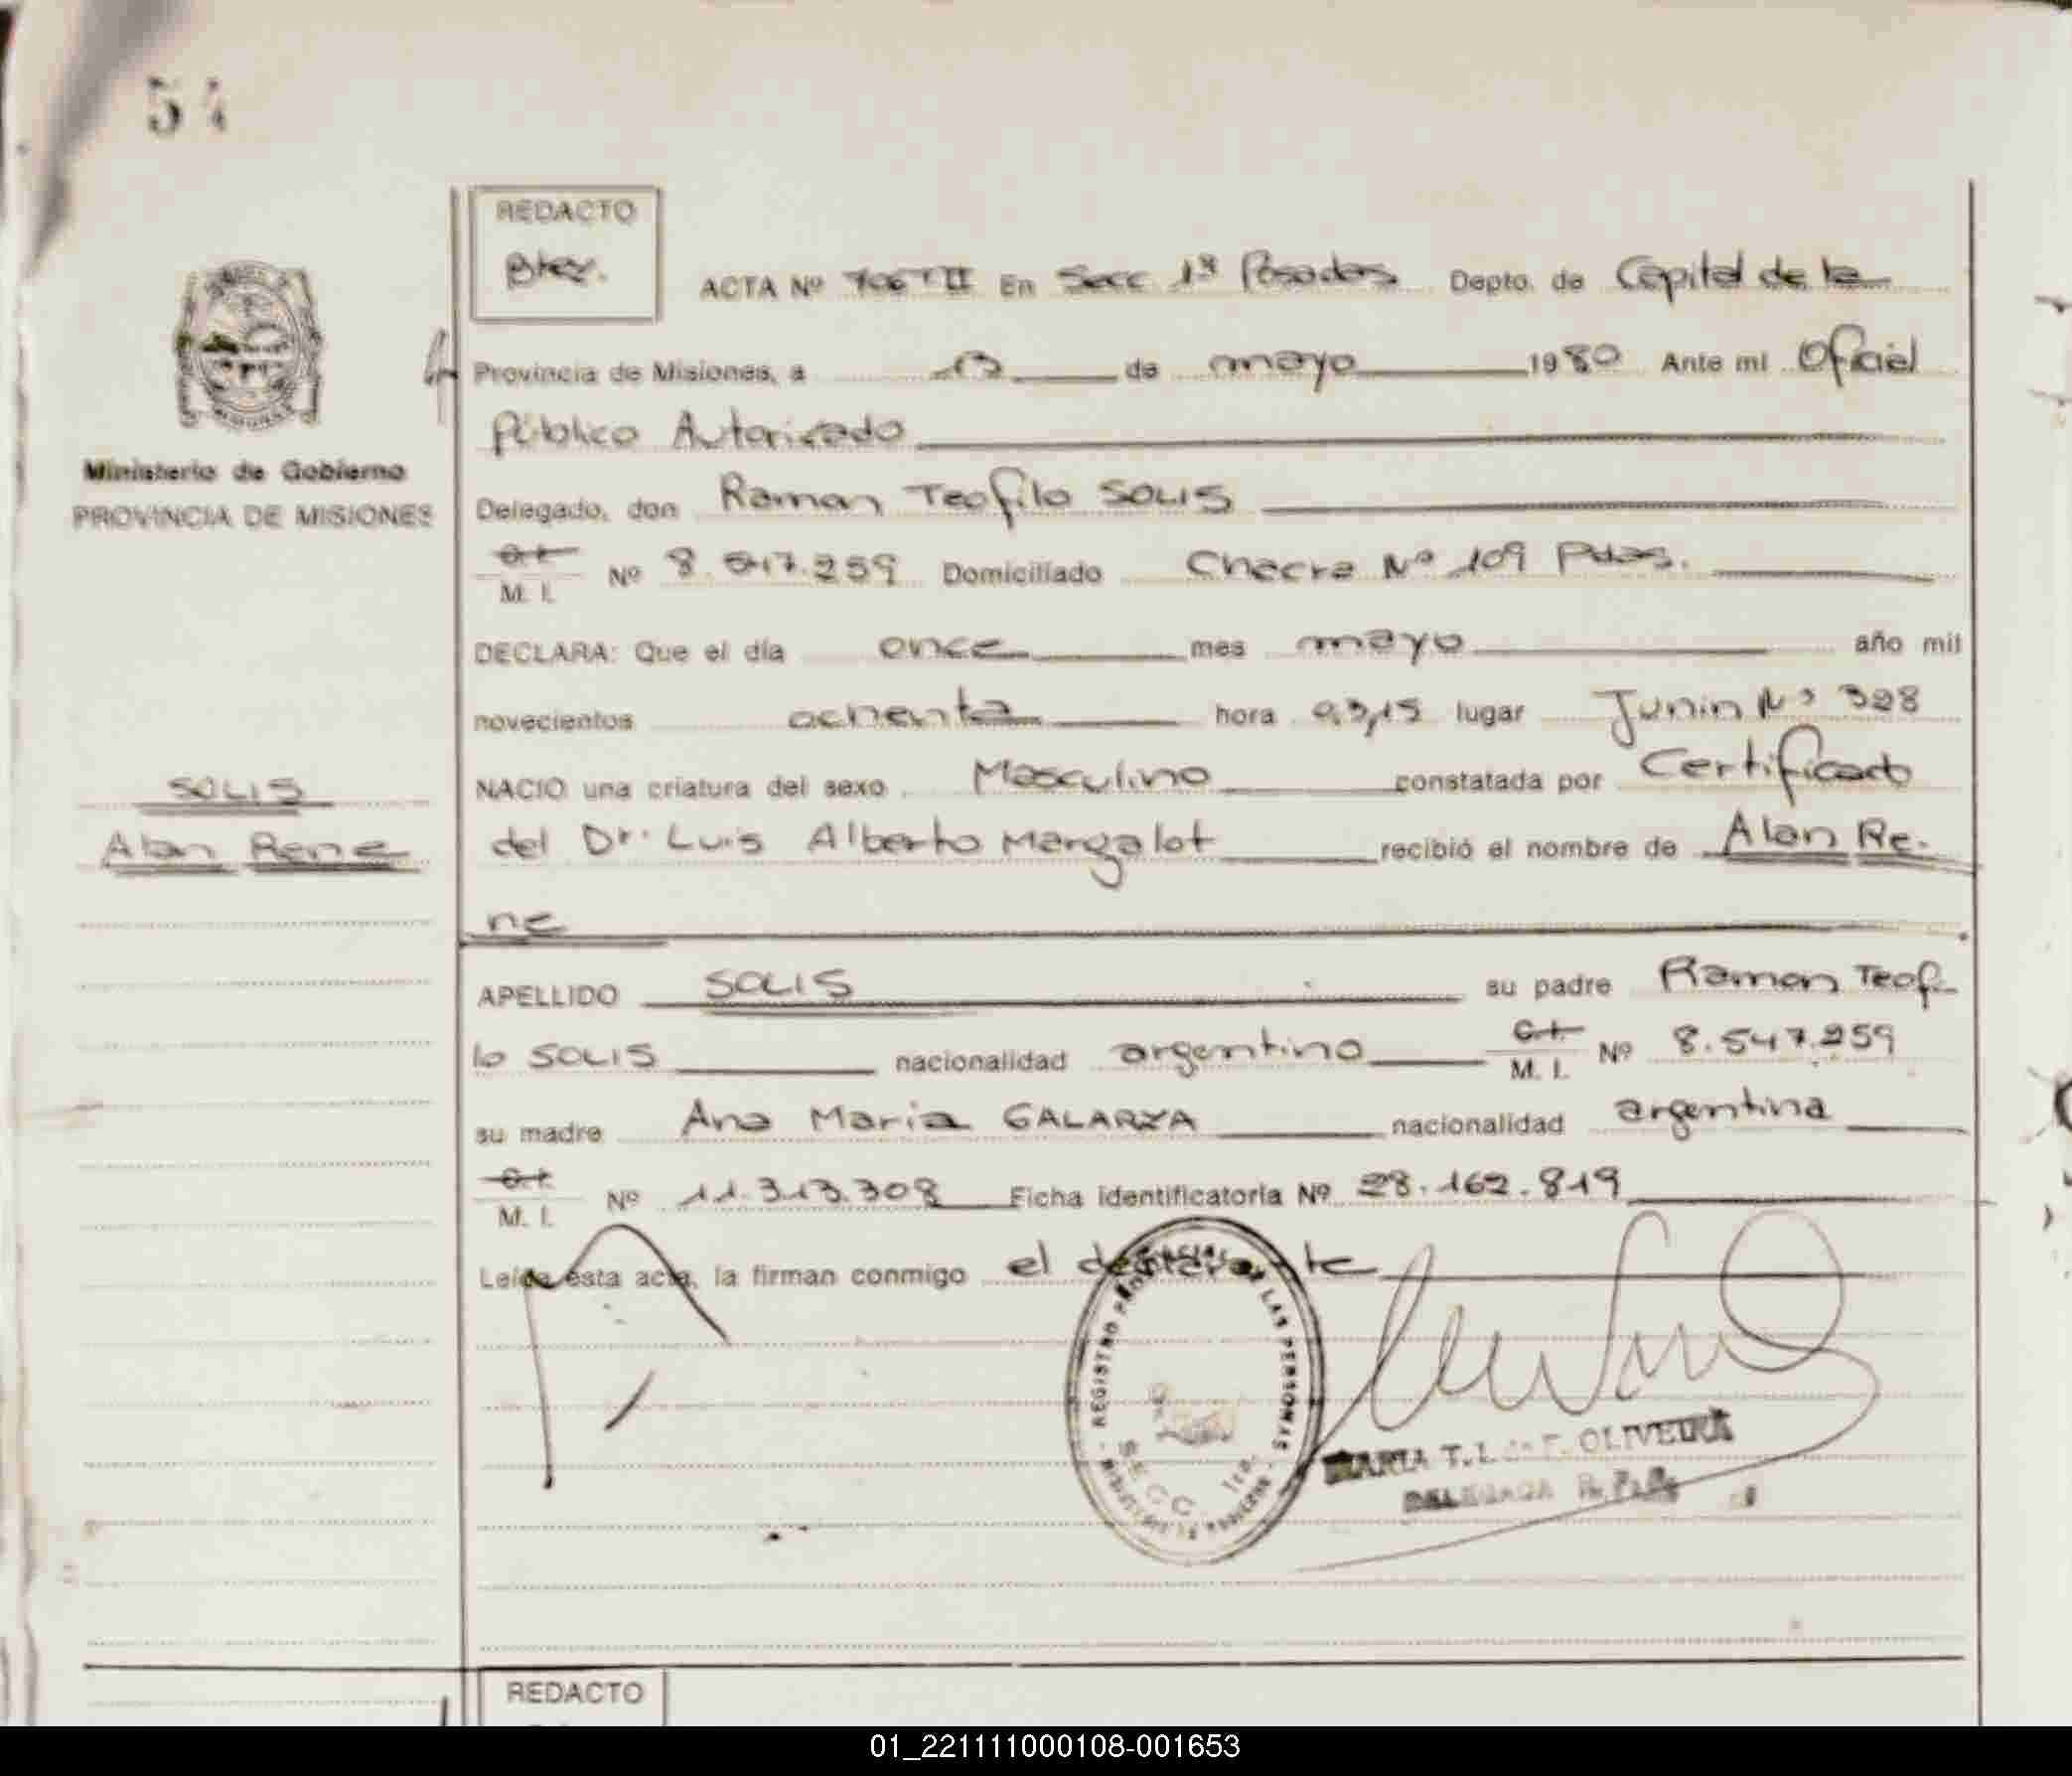 54
REDACTO
ACTA Nº 706 T II En Secc 1ª Posadas Depto. de Capital de la
Provincia de Misiones, a 13 de mayo 1980 Ante mi Oficial
Público Autorizado
Ministerio de Gobierno
PROVINCIA DE MISIONES
Delegado, don Ramon Teofilo SOLIS
C.I.
M. I. Nº 8.547.259 Domiciliado Chacra Nº 109 Pdas.
DECLARA: Que el día once mes mayo año mil
novecientos ochenta hora 03,15 lugar Junin Nº 328
SOLIS
NACIO una criatura del sexo Masculino constatada por Certificado
Alan Rene
del Dr. Luis Alberto Margalot recibió el nombre de Alan Re-
ne
APELLIDO SOLIS su padre Ramon Teofi
lo SOLIS nacionalidad argentino C.I. M. I. Nº 8.547.259
su madre Ana Maria GALARZA nacionalidad argentina
C.I.
M. I. Nº 11.313.308 Ficha identificatoria Nº 28.162.819
Leída esta acta, la firman conmigo el declarante
REGISTRO LAS PERSONAS
SECC. 1ra.
MARIA T. L. de F. OLIVEIRA
DELEGADA R. P. P.
REDACTO
01_221111000108-001653